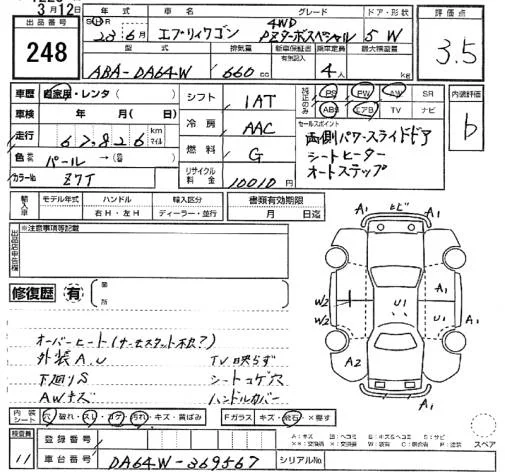 3月12日
出品番号
248
年式 車名 グレード ドア・形状
23 6月 エブリィワゴン 4WD PZターボスペシャル 5 W
型式 排気量 新車保証書 乗車定員 最大積載量
有無記入
ABA-DA64W 660 cc 4人 kg
評価点
3.5
車歴 自家用・レンタ( )
車検 年 月( 日)
走行 67,826 km マイル
色 パール→( 色)
カラーNo Z7T
シフト IAT
冷房 AAC
燃料 G
リサイクル料金 10010円
純正のみ PS PW AW SR
ABS エアB TV ナビ
セールスポイント
両側パワースライドドア
シートヒーター
オートステップ
内装評価
b
輸入車 モデル年式 ハンドル 輸入区分
右H・左H ディーラー・並行
書類有効期限
月 日迄
出品店申告欄
※注意事項等記載
修復歴 有 箇所
オーバーヒート(サーモスタット不良?)
外装A.U TV映らず
下廻りS シートコゲ穴
AWキズ ハンドルカバー
A1 ヒビ A1
W2 U1 A1
W2 U1 A1
A2 A1
A1
内装シート 穴・破れ・スレ・コゲ・汚れ・キズ・黄ばみ Fガラス キズ・飛石・×要す
スペア
検査員
11
登録番号
車台番号 DA64W-369567 シリアルNo